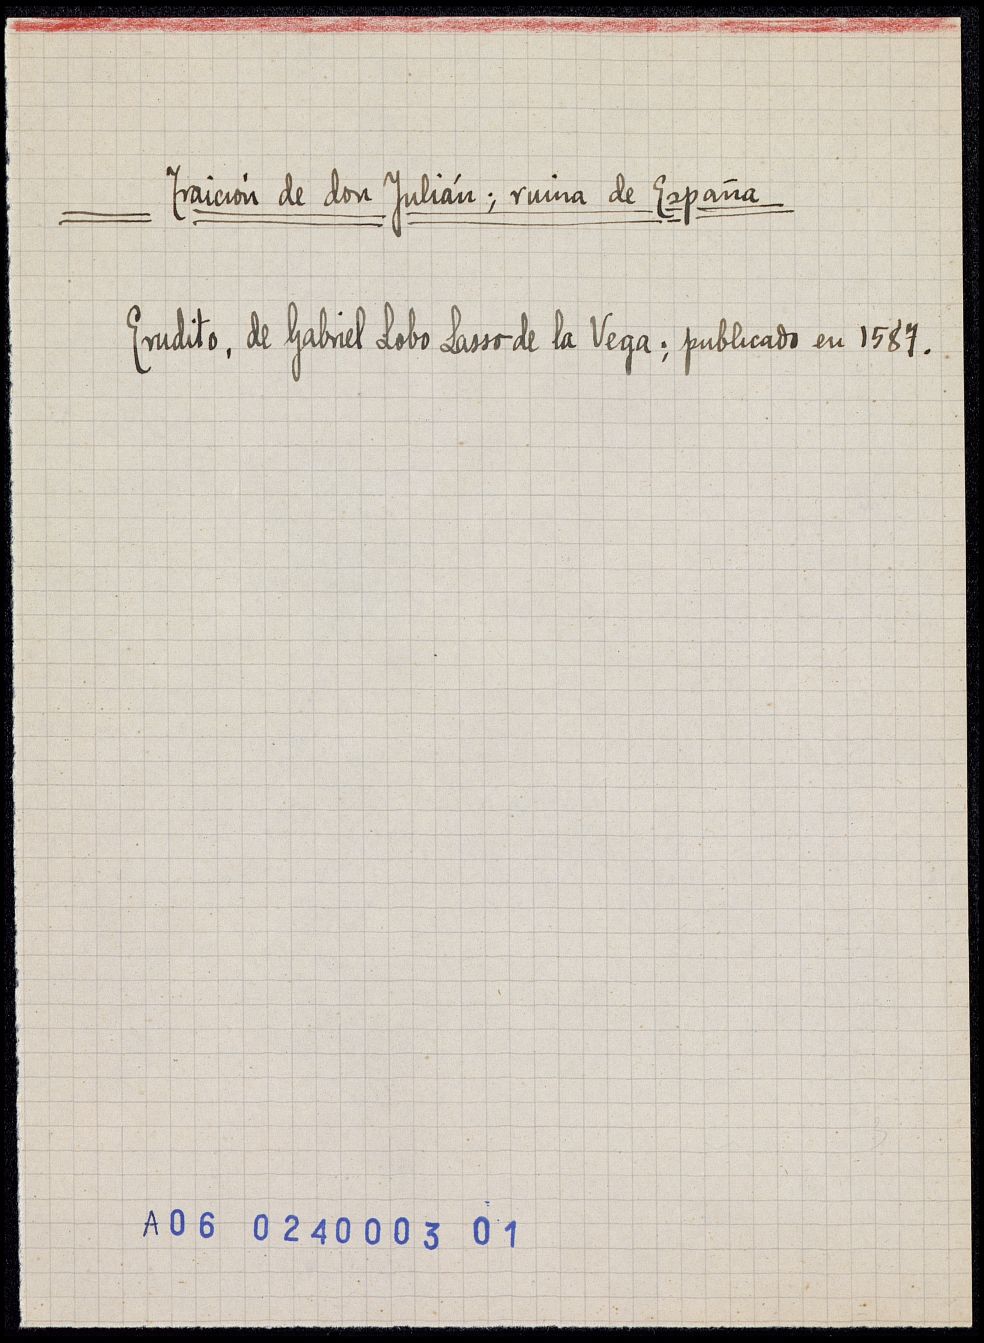 Traición de don Julián; ruina de España
Erudito, de Gabriel Lobo Lasso de la Vega; publicado en 1587.
A06 0240003 01